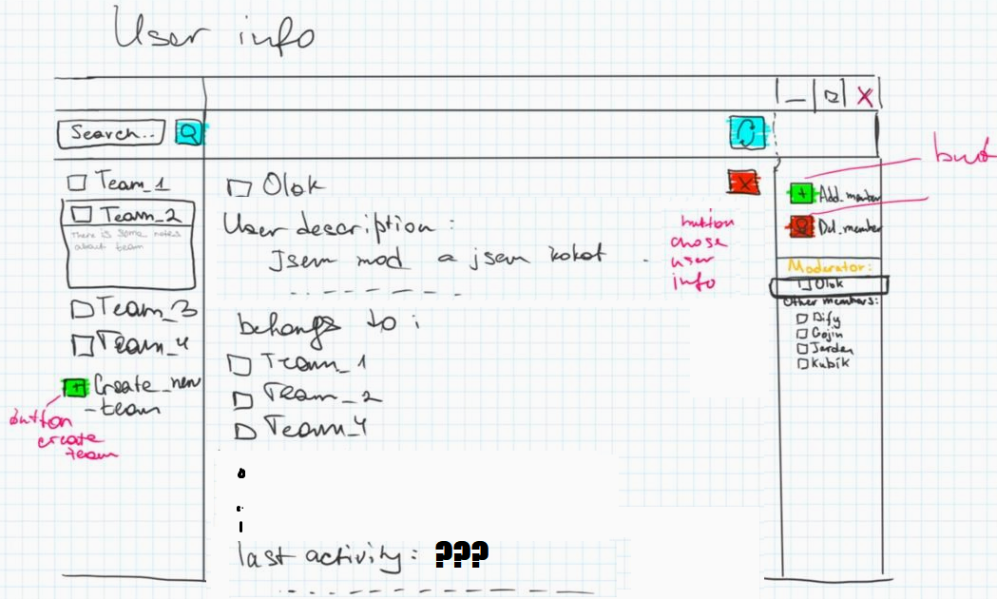 User info
Search...
Team_1
Team_2
There is some notes
about team
Team_3
Team_4
Create_new
-team
button
create
team
Olok
User description:
Jsem mod a jsem kokot
button
chose
user
info
belongs to:
Team_1
Team_2
Team_4
last activity: ???
Add_member
Del_member
Moderator:
Olok
Other members:
Dify
Gojin
Jarden
Kubik